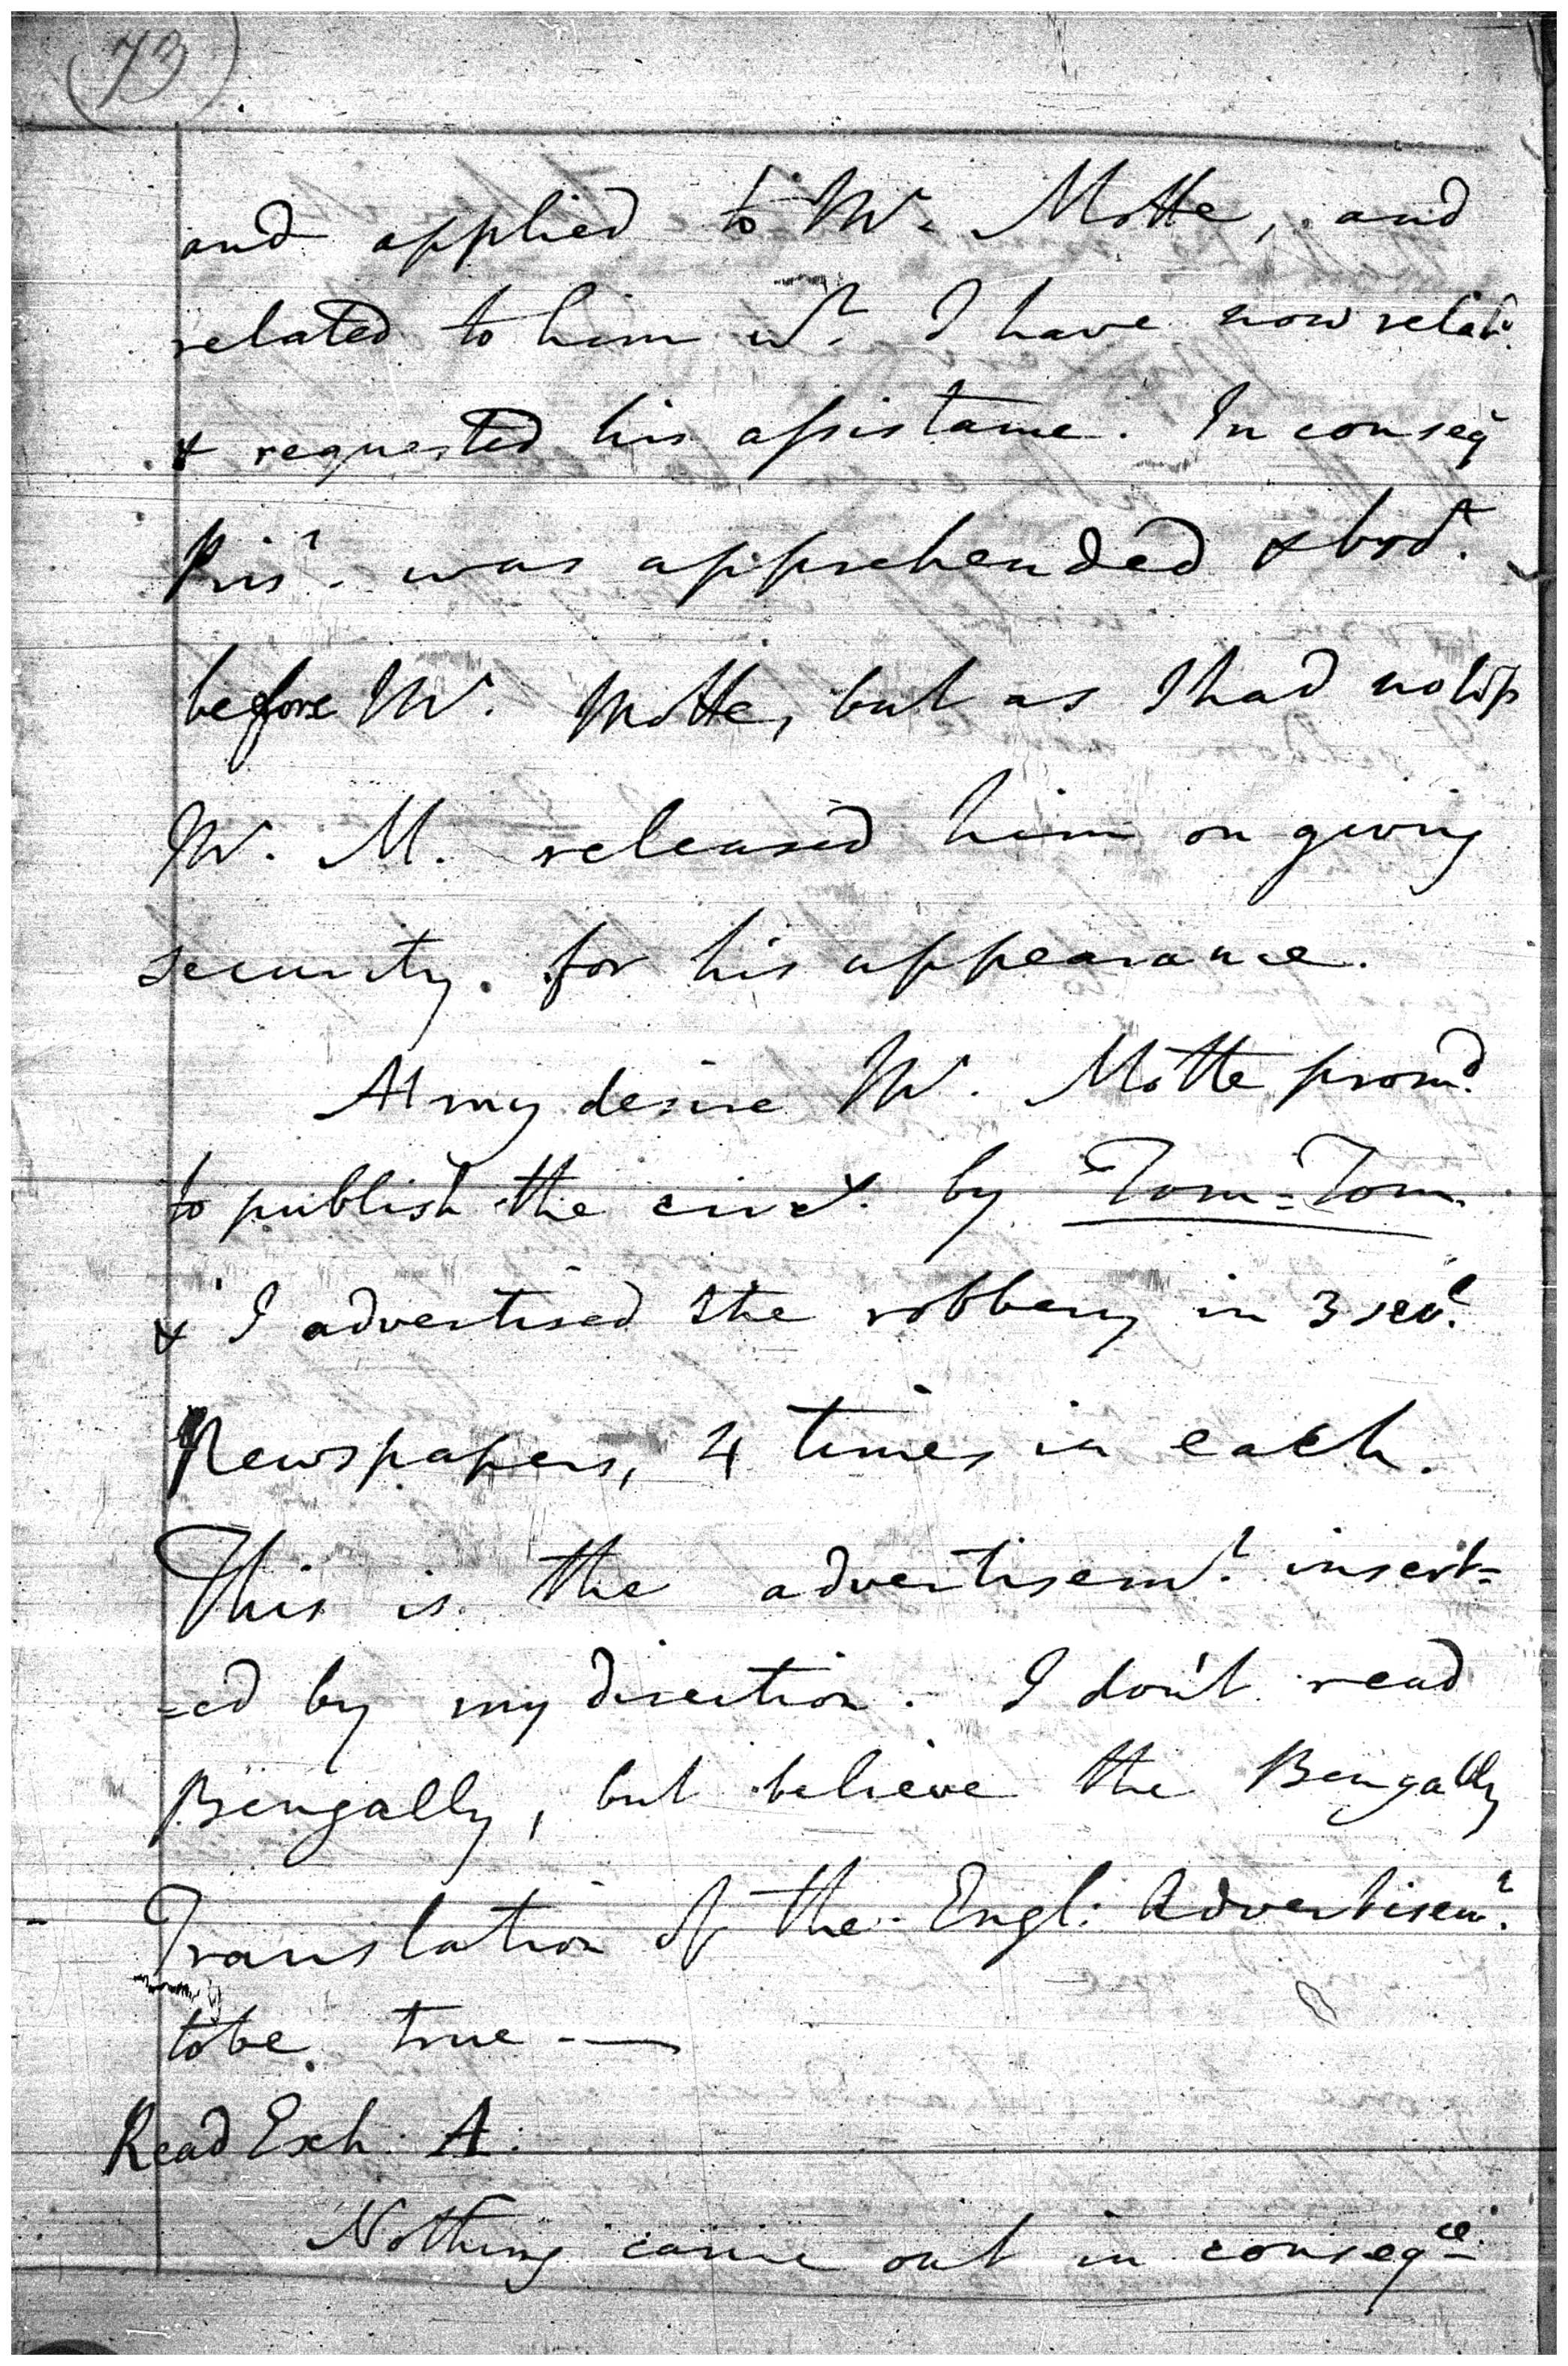 (73)
and applied to Mr. Motte, and
related to him wt. I have now relatd.
& requested his assistance. In conseq
Prisr. was apprehended & brot.
before Mr. Motte, but as I had no
Mr. M. released him on giving
security. for his appearance.
At my desire Mr. Motte promd.
to publish the circx. by Tom=Tom
& I advertised the robbery in 3 sevl.
Newspapers, 4 times in each.
This is the advertisemt. insert=
=ed by my direction. I don't read
Bengally, but believe the Bengally
Translation of the Engl: Advertisemt.
to be true —
Read Exh: A:
Nothing came out in conseqce.